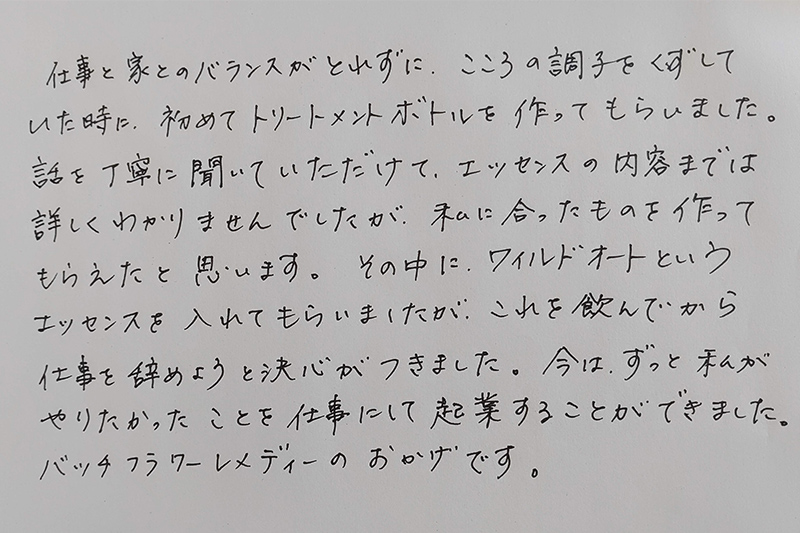 仕事と家とのバランスがとれずに、こころの調子をくずして
いた時に、初めてトリートメントボトルを作ってもらいました。
話を丁寧に聞いていただけて、エッセンスの内容までは
詳しくわかりませんでしたが、私に合ったものを作って
もらえたと思います。その中に、ワイルドオートという
エッセンスを入れてもらいましたが、これを飲んでから
仕事を辞めようと決心がつきました。今は、ずっと私が
やりたかったことを仕事にして起業することができました。
バッチフラワーレメディーのおかげです。